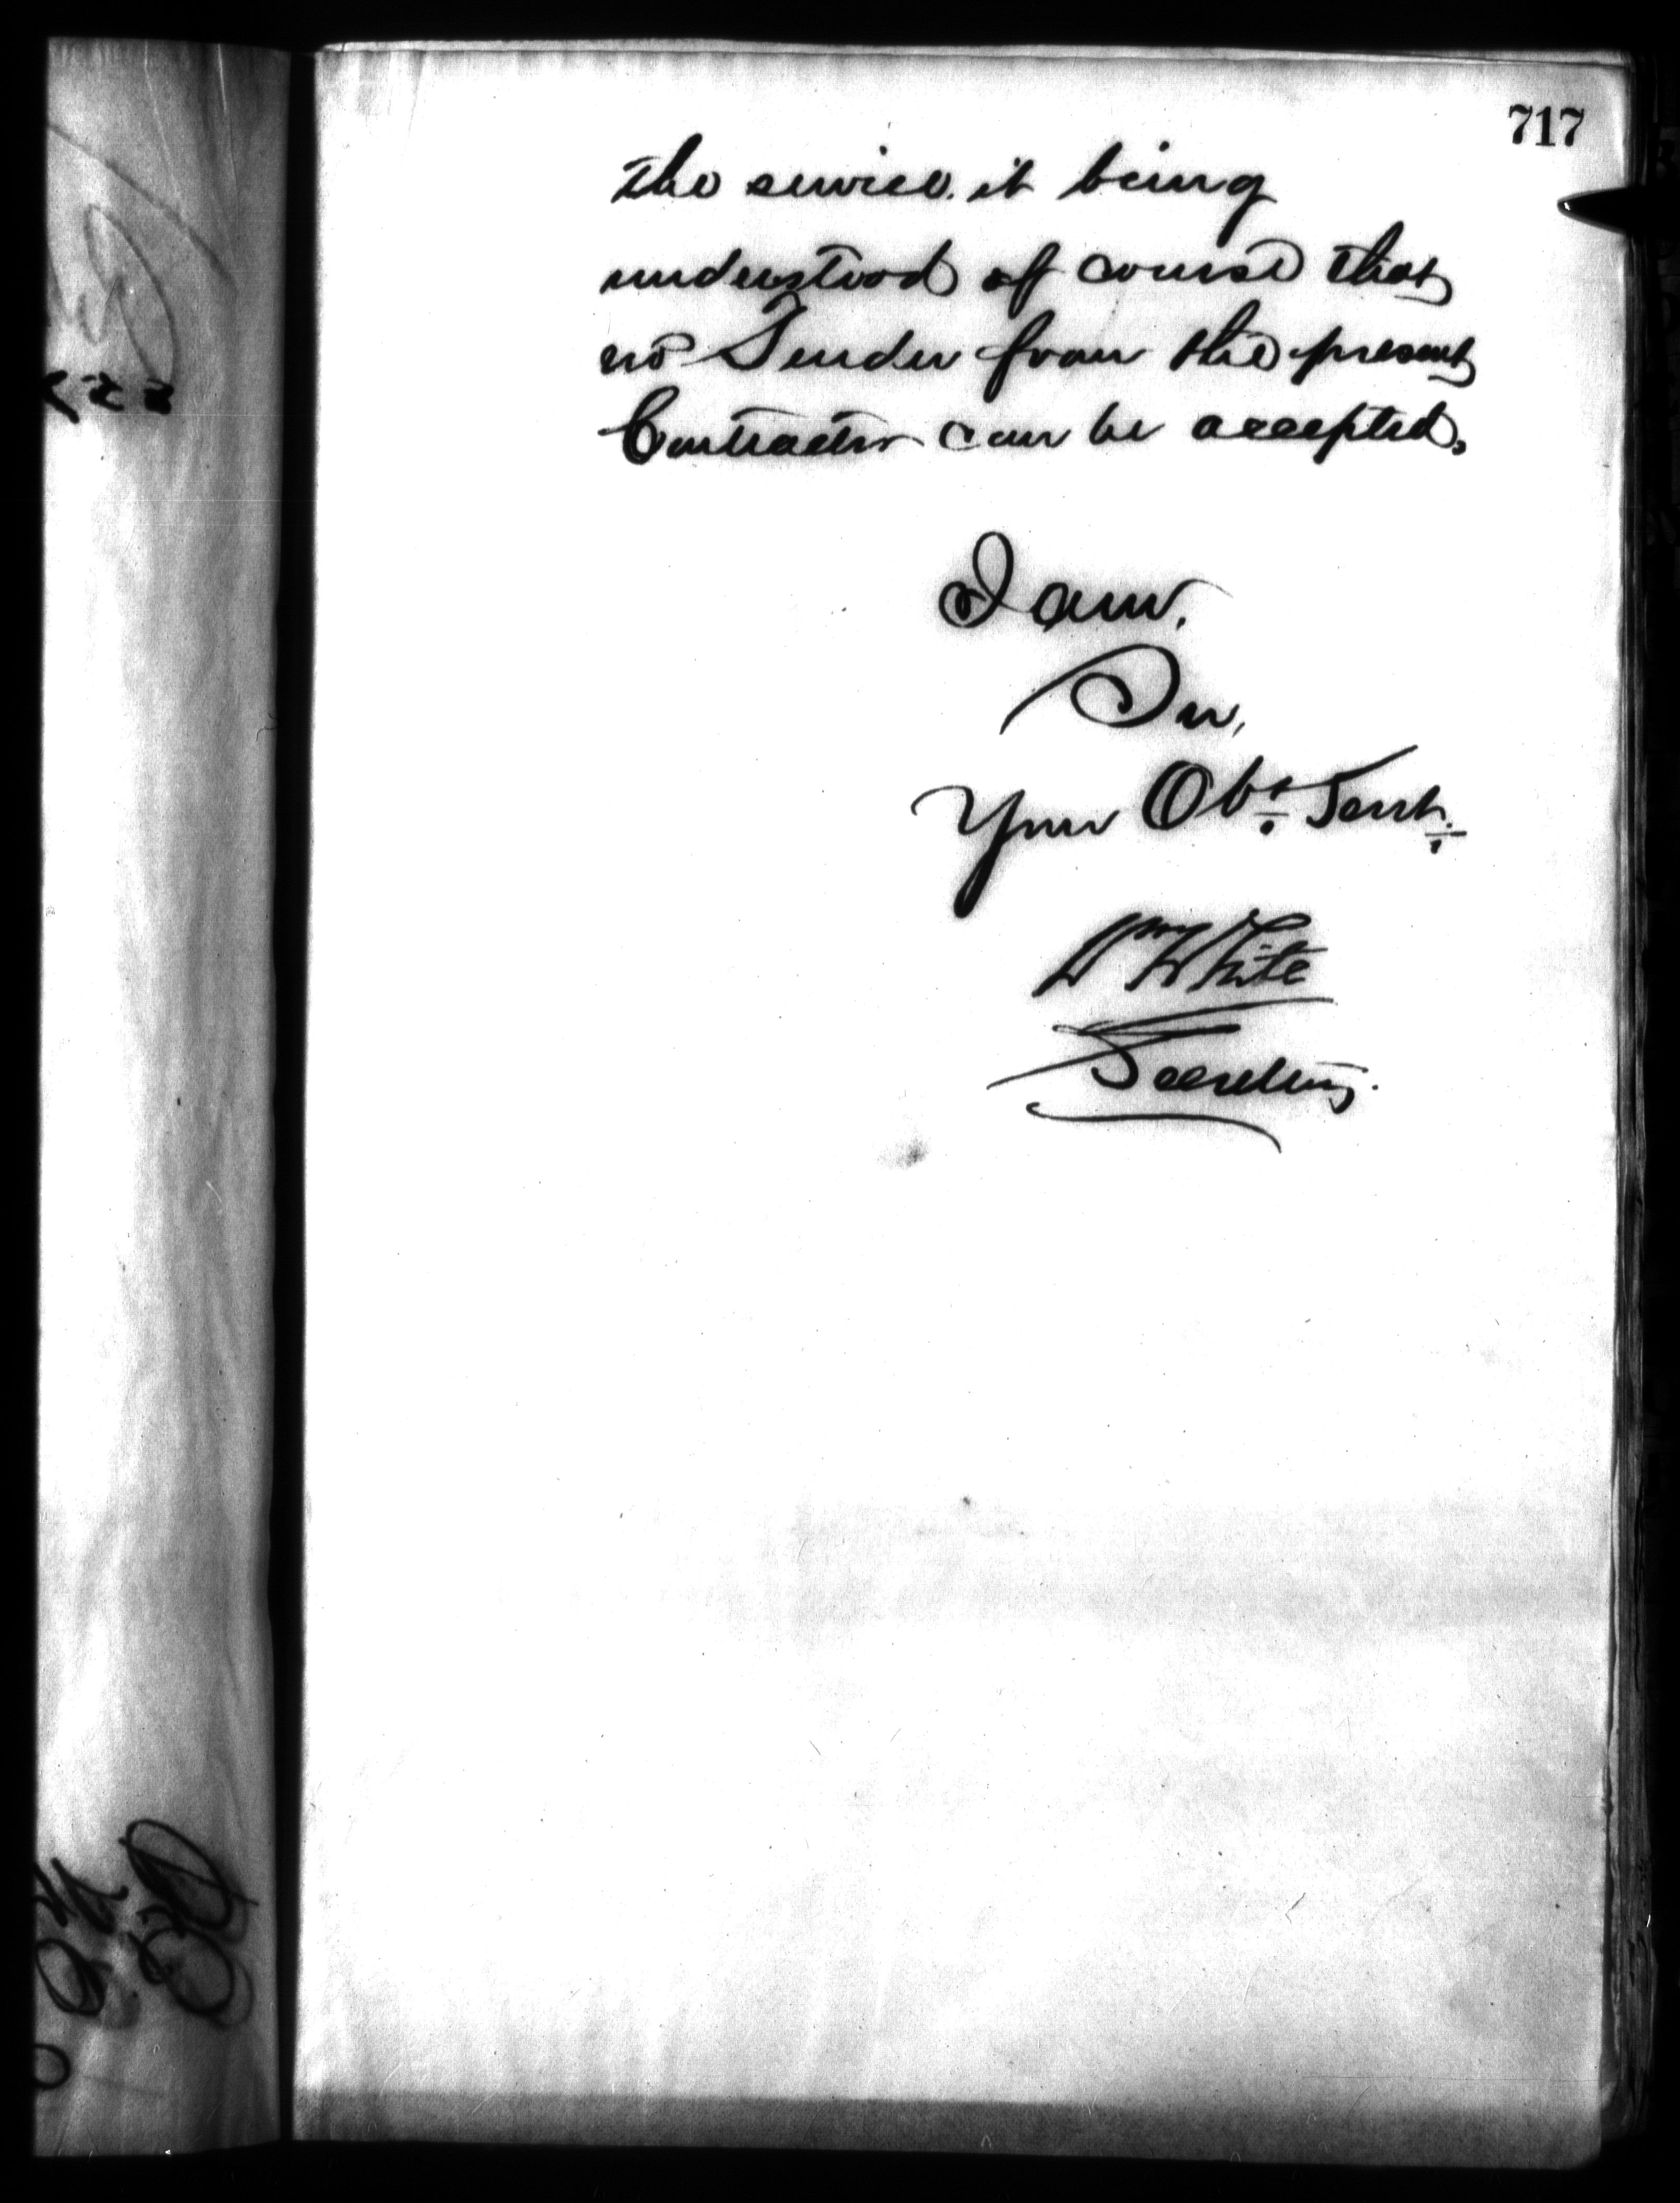 717
the service, it being
understood of course that
no Tender from the present
Contractor can be accepted.
I am,
Sir,
Your Obt. Servt.
Wm White
Secretary.